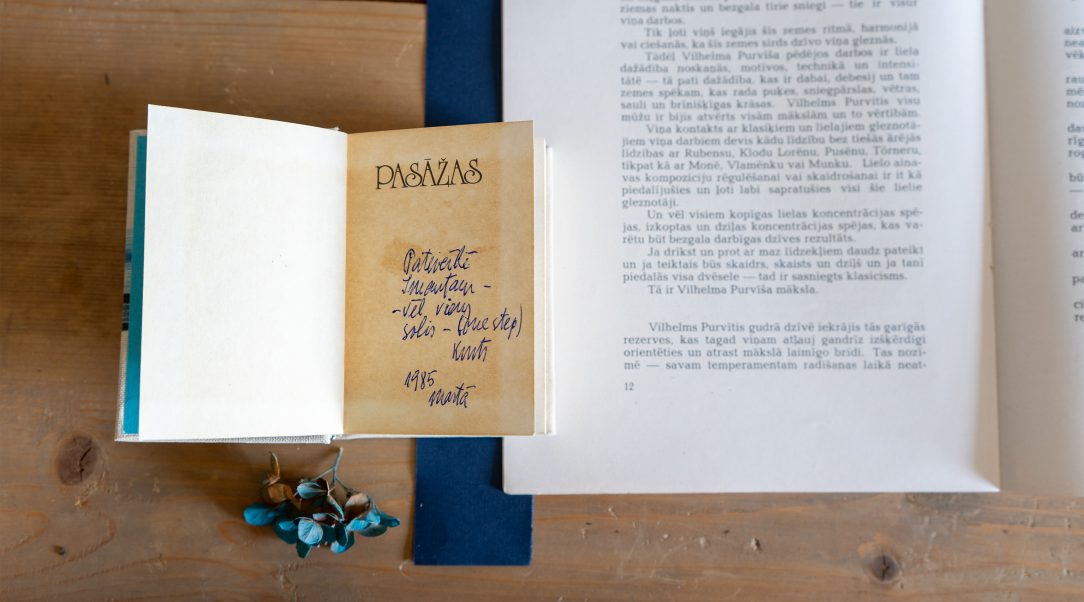 PASĀŽAS
Pateicībā
Imantam –
– vēl vienu
solis – (one step)
Knuts
1985
martā
ziemas naktis un bezgala tīrie sniegi — tie ir visur
viņa darbos.
Tik ļoti viņš iegājis šīs zemes ritmā, harmonijā
vai ciešanās, ka šīs zemes sirds dzīvo viņa gleznās.
Tādēļ Vilhelma Purvīša pēdējos darbos ir liela
dažādība noskaņās, motīvos, technikā un intensi-
tātē — tā pati dažādība, kas ir dabai, debesīj un tam
zemes spēkam, kas rada puķes, sniegpārslas, vētras,
sauli un brīnišķīgas krāsas. Vilhelms Purvītis visu
mūžu ir bijis atvērts visām mākslām un to vērtībām.
Viņa kontakts ar klasiķiem un lielajiem gleznotā-
jiem viņa darbiem devis kādu līdzību bez tiešās ārējās
līdzības ar Rubensu, Klodu Lorēnu, Pusēnu, Tērneru,
tikpat kā ar Monē, Vlamēnku vai Munku. Lielo aina-
vas kompoziciju rēgulēšanai vai skaidrošanai ir it kā
piedalījušies un ļoti labi sapratušies visi šie lielie
gleznotāji.
Un vēl visiem kopīgas lielas koncentrācijas spē-
jas, izkoptas un dziļas koncentrācijas spējas, kas va-
rētu būt bezgala darbīgas dzīves rezultāts.
Ja drīkst un prot ar maz līdzekļiem daudz pateikt
un ja teiktais būs skaidrs, skaists un dziļš un ja tani
piedalās visa dvēsele — tad ir sasniegts klasicisms.
Tā ir Vilhelma Purvīša māksla.
Vilhelms Purvītis gudrā dzīvē iekrājis tās garīgās
rezerves, kas tagad viņam atļauj gandrīz izšķērdīgi
orientēties un atrast mākslā laimīgo brīdi. Tas nozī-
mē — savam temperamentam radīšanas laikā neat-
12